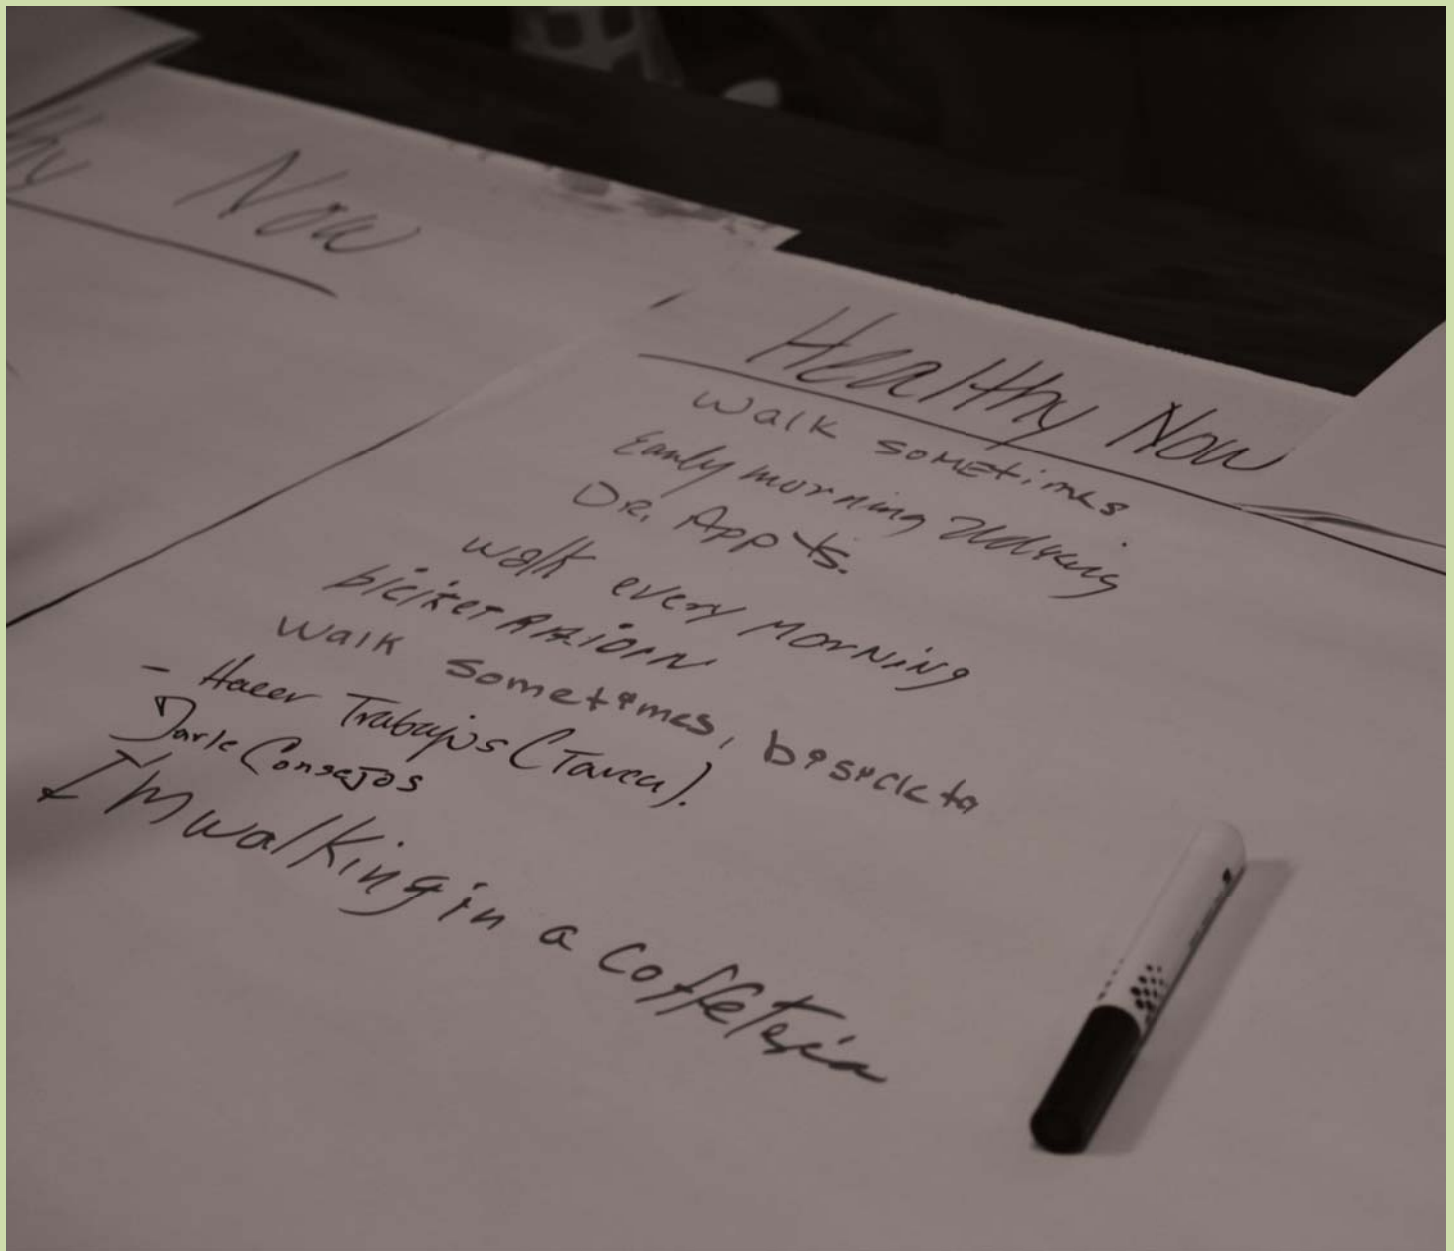 Now
Healthy Now
walk sometimes
Early morning walking
DR. Appts.
walk every MORNING
walk sometimes, bisycle to
- Hacer Trabajos (Tarea).
Darle Consejos
I'M walking in a coffeteria